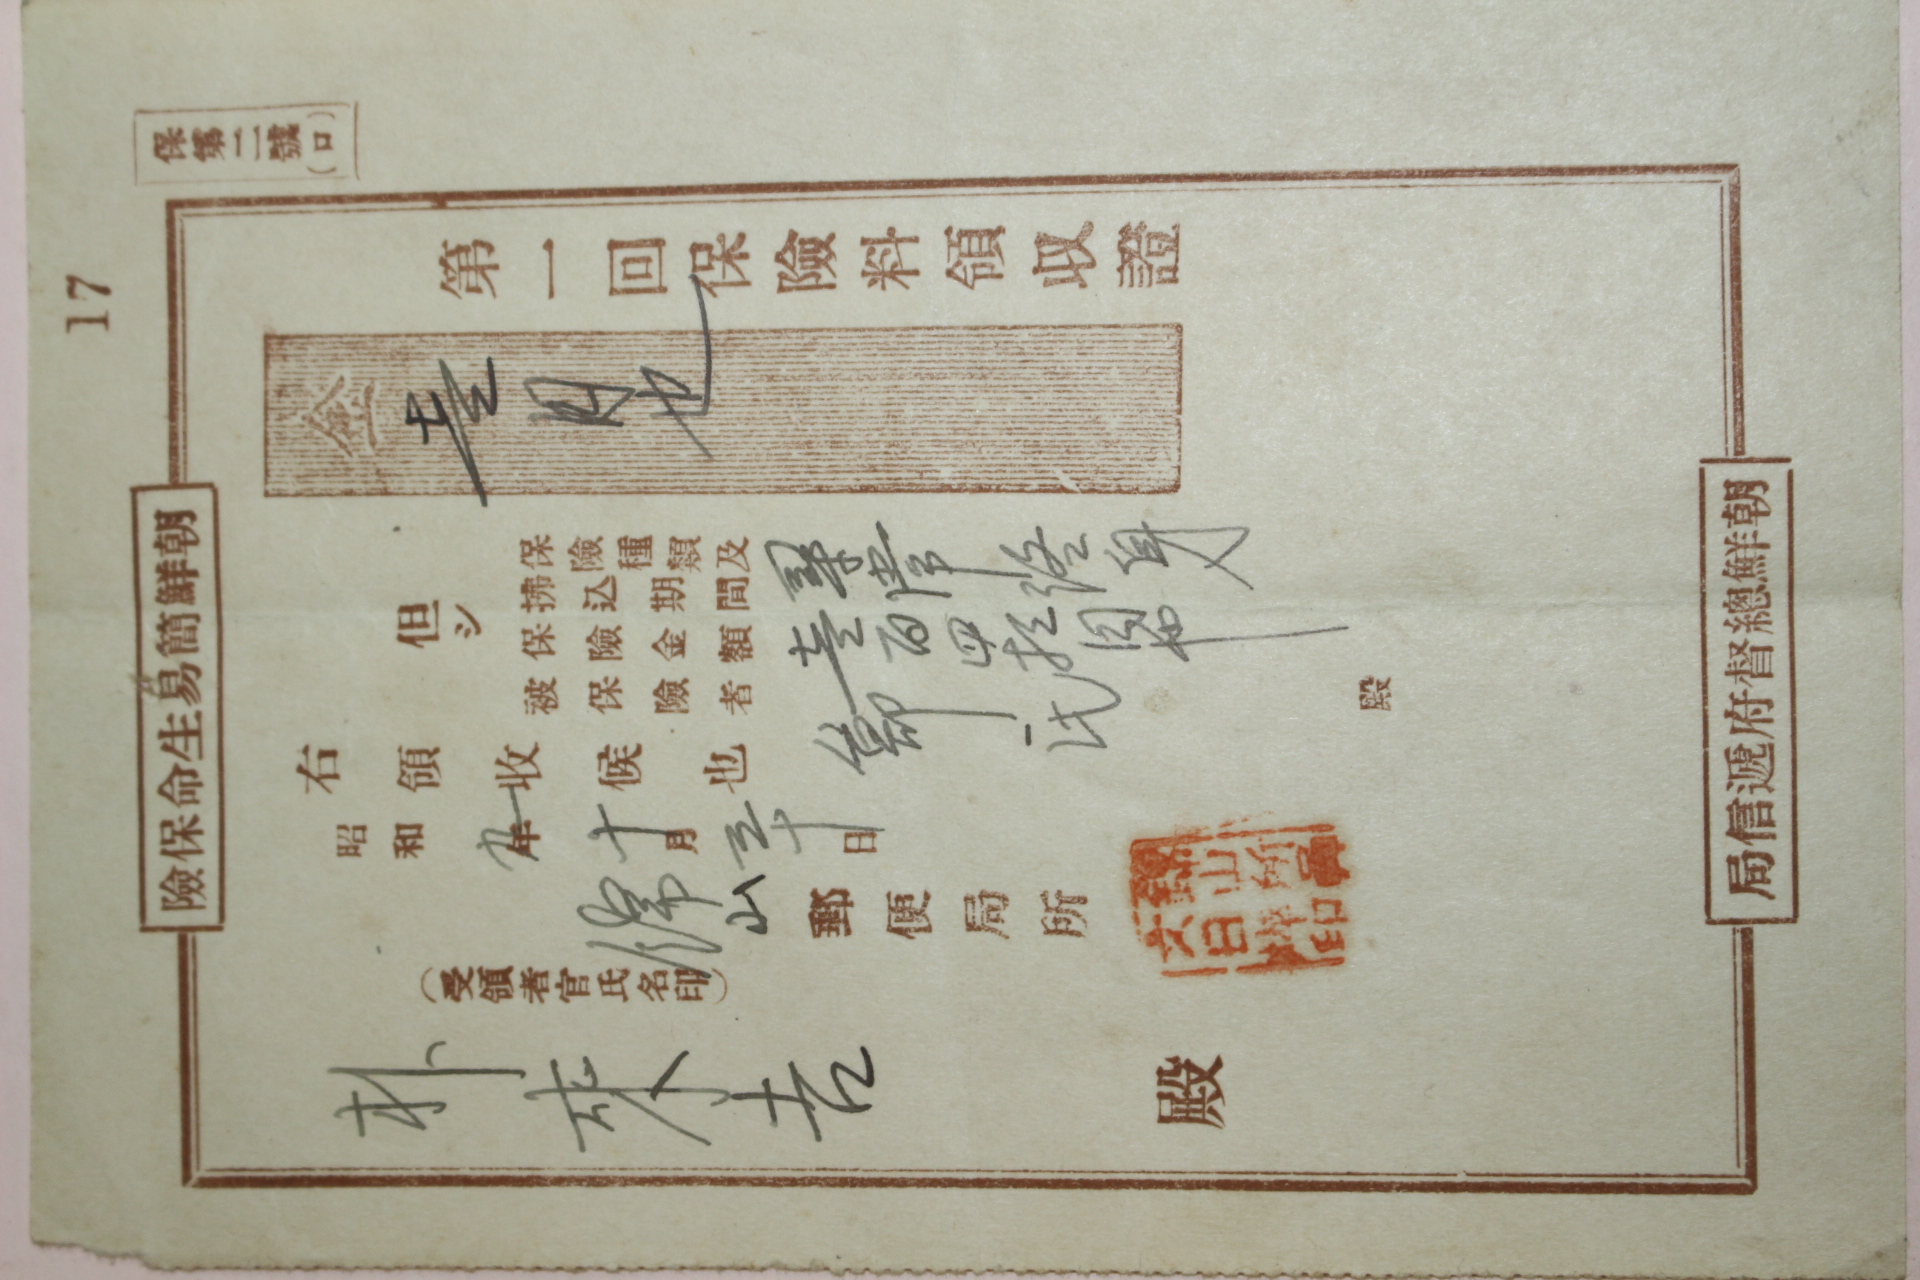 17
保第二號(ロ)
朝鮮簡易生命保險
第一回保險料領收證
金 壹円也
但シ
保險種類及
拂込期間
保險金額
被保險者
壹百四拾
殿
右領收候也
昭和九年十月三十日
山 郵便局所
(受領者官氏名印)
朴來吉 殿
朝鮮總督府遞信局